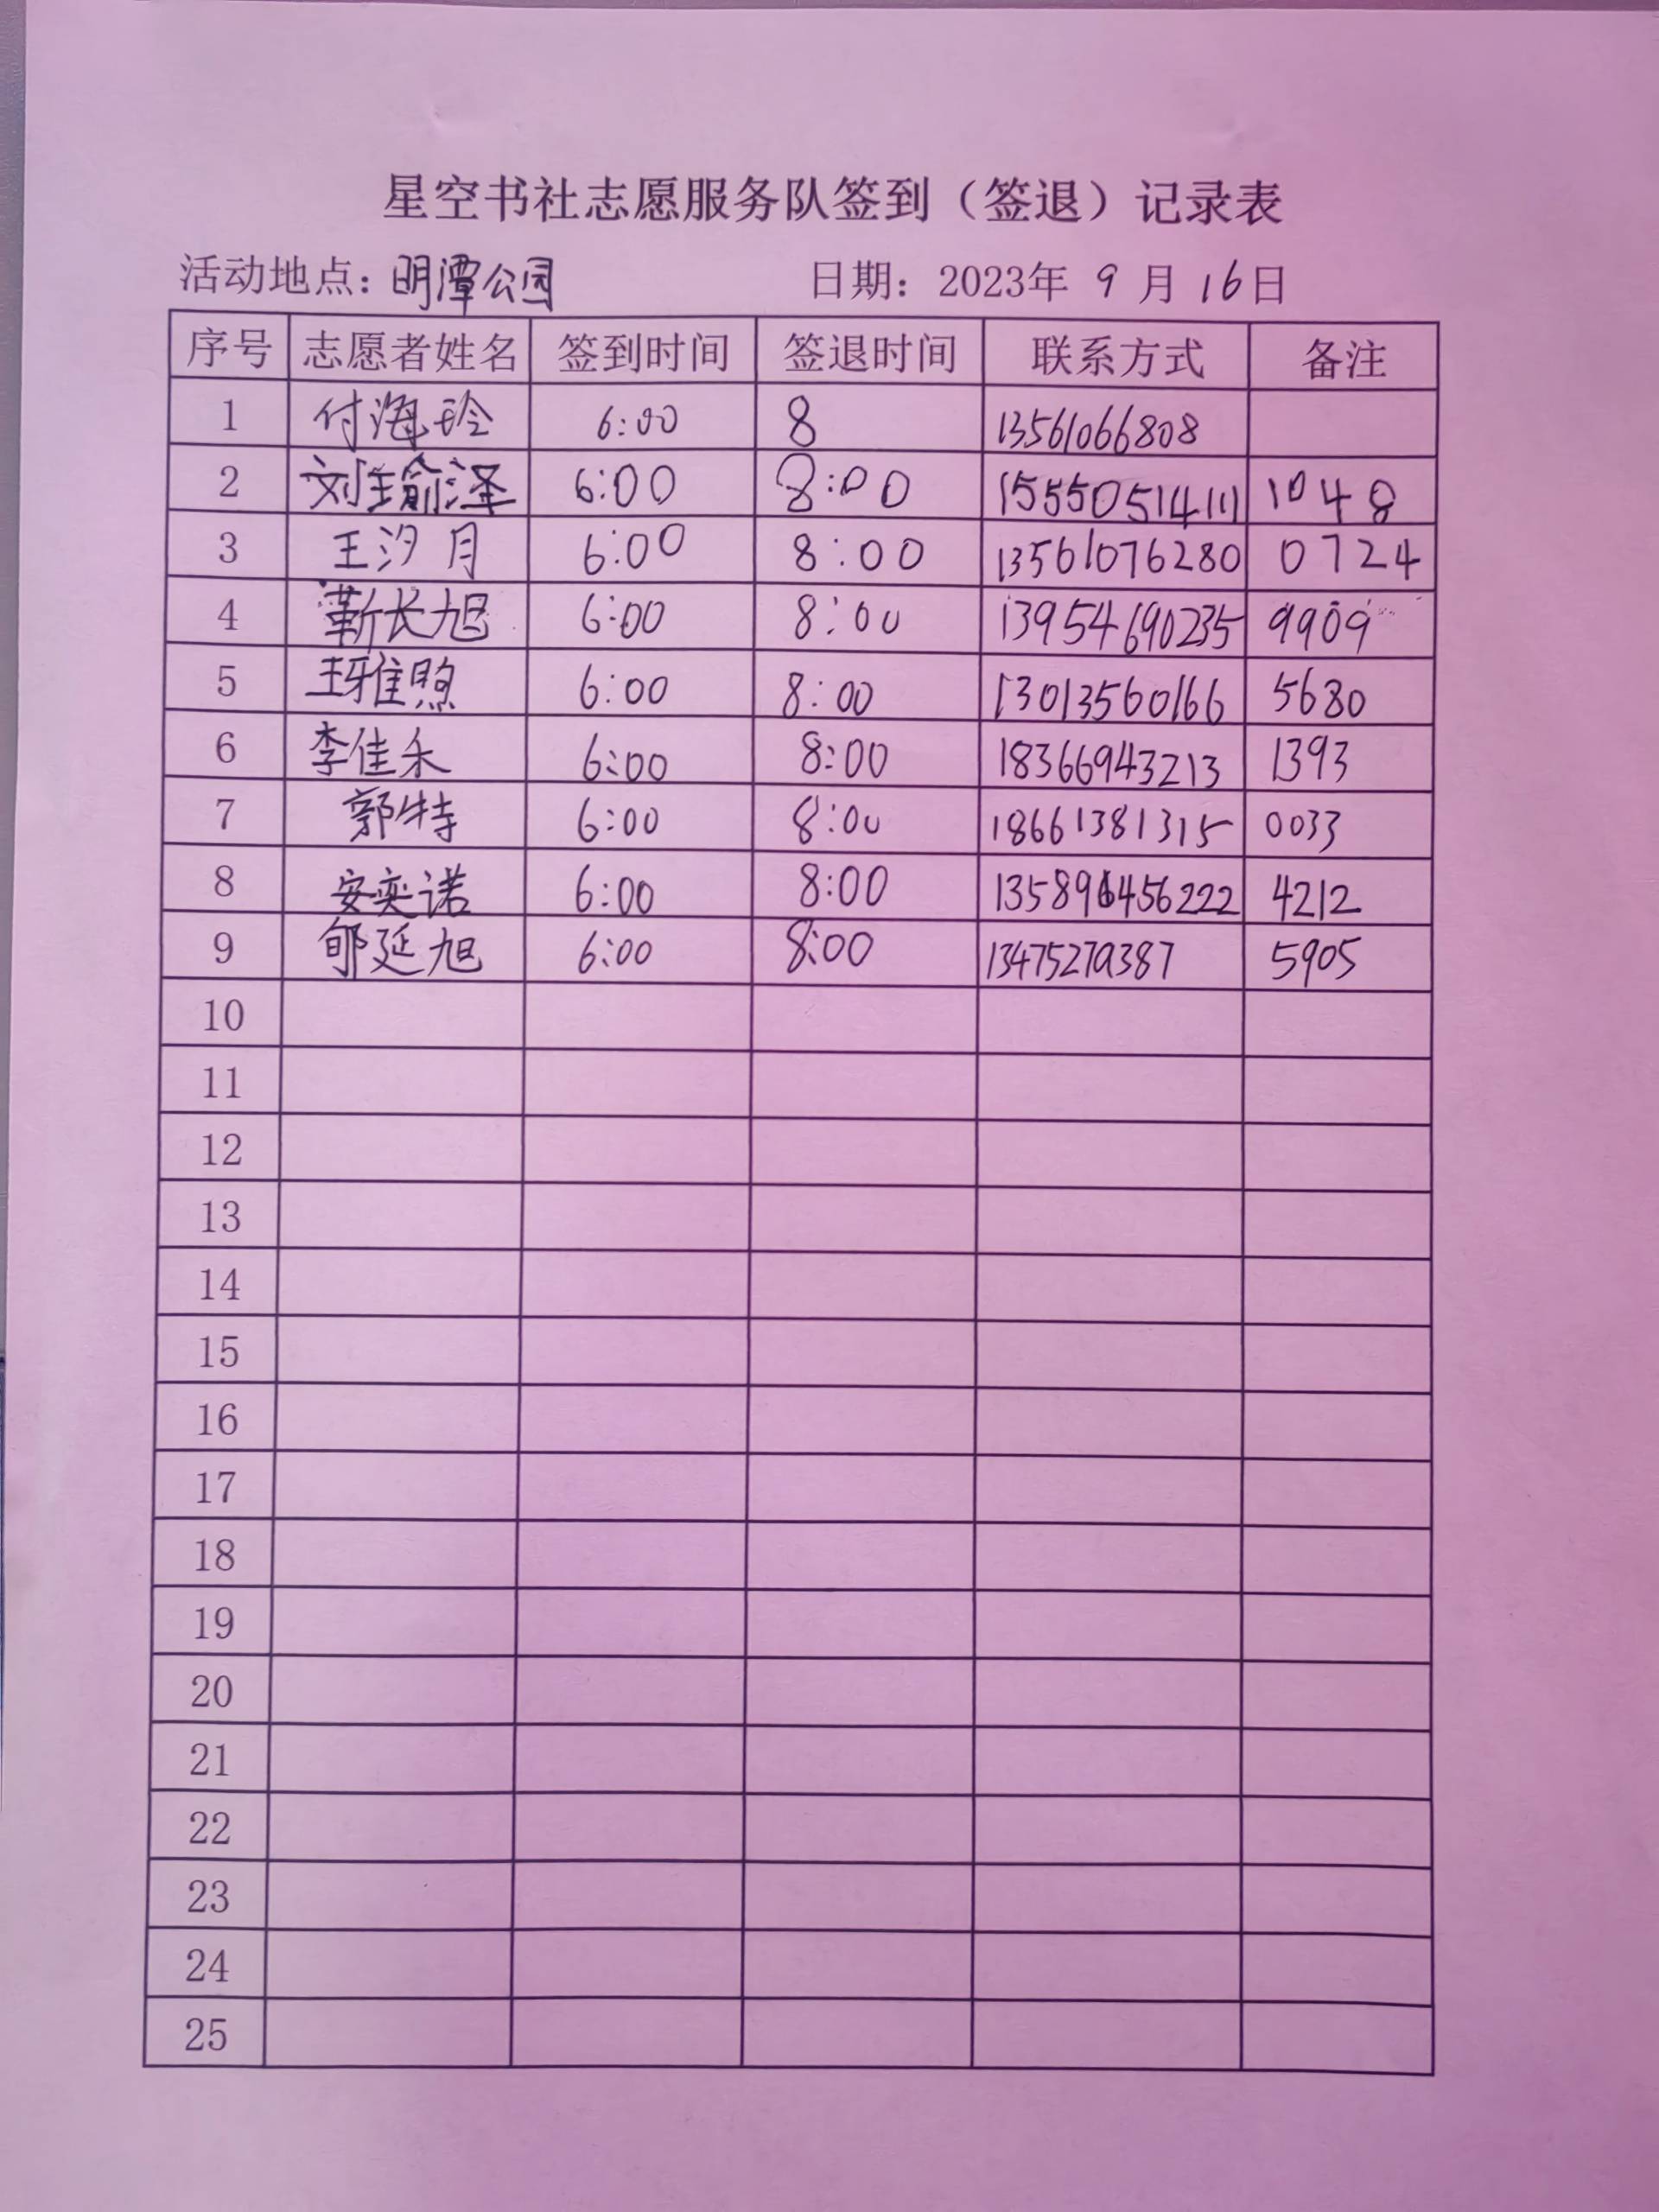 星空书社志愿服务队签到（签退）记录表
活动地点：明潭公园 日期：2023年 9 月 16日
序号 志愿者姓名 签到时间 签退时间 联系方式 备注
1 付海玲 6:00 8 13561066808
2 刘瑜泽 6:00 8:00 15550514111 1048
3 王汐月 6:00 8:00 13561076280 0724
4 靳长旭 6:00 8:00 13954690235 9909
5 王雅煦 6:00 8:00 13013560166 5680
6 李佳禾 6:00 8:00 18366943213 1393
7 郭特 6:00 8:00 18661381315 0033
8 安奕诺 6:00 8:00 4212
9 郇延旭 6:00 8:00 13475279387 5905
10
11
12
13
14
15
16
17
18
19
20
21
22
23
24
25